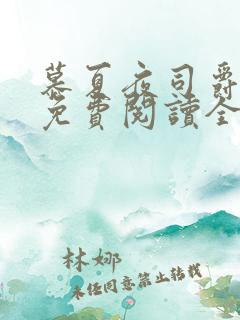 慕夏夜司爵
免費閱讀全
林娜
未任同意禁止转载